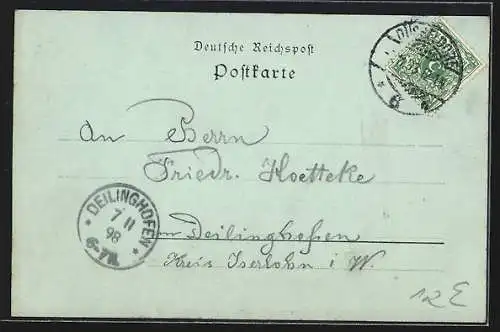 Deutsche Reichspost
Postkarte
An Herrn
Friedr. Koetteke
DEILINGHOFEN
7 11
98
6-7N.
in Deilinghofen
Kreis Iserlohn i. W.
12 E